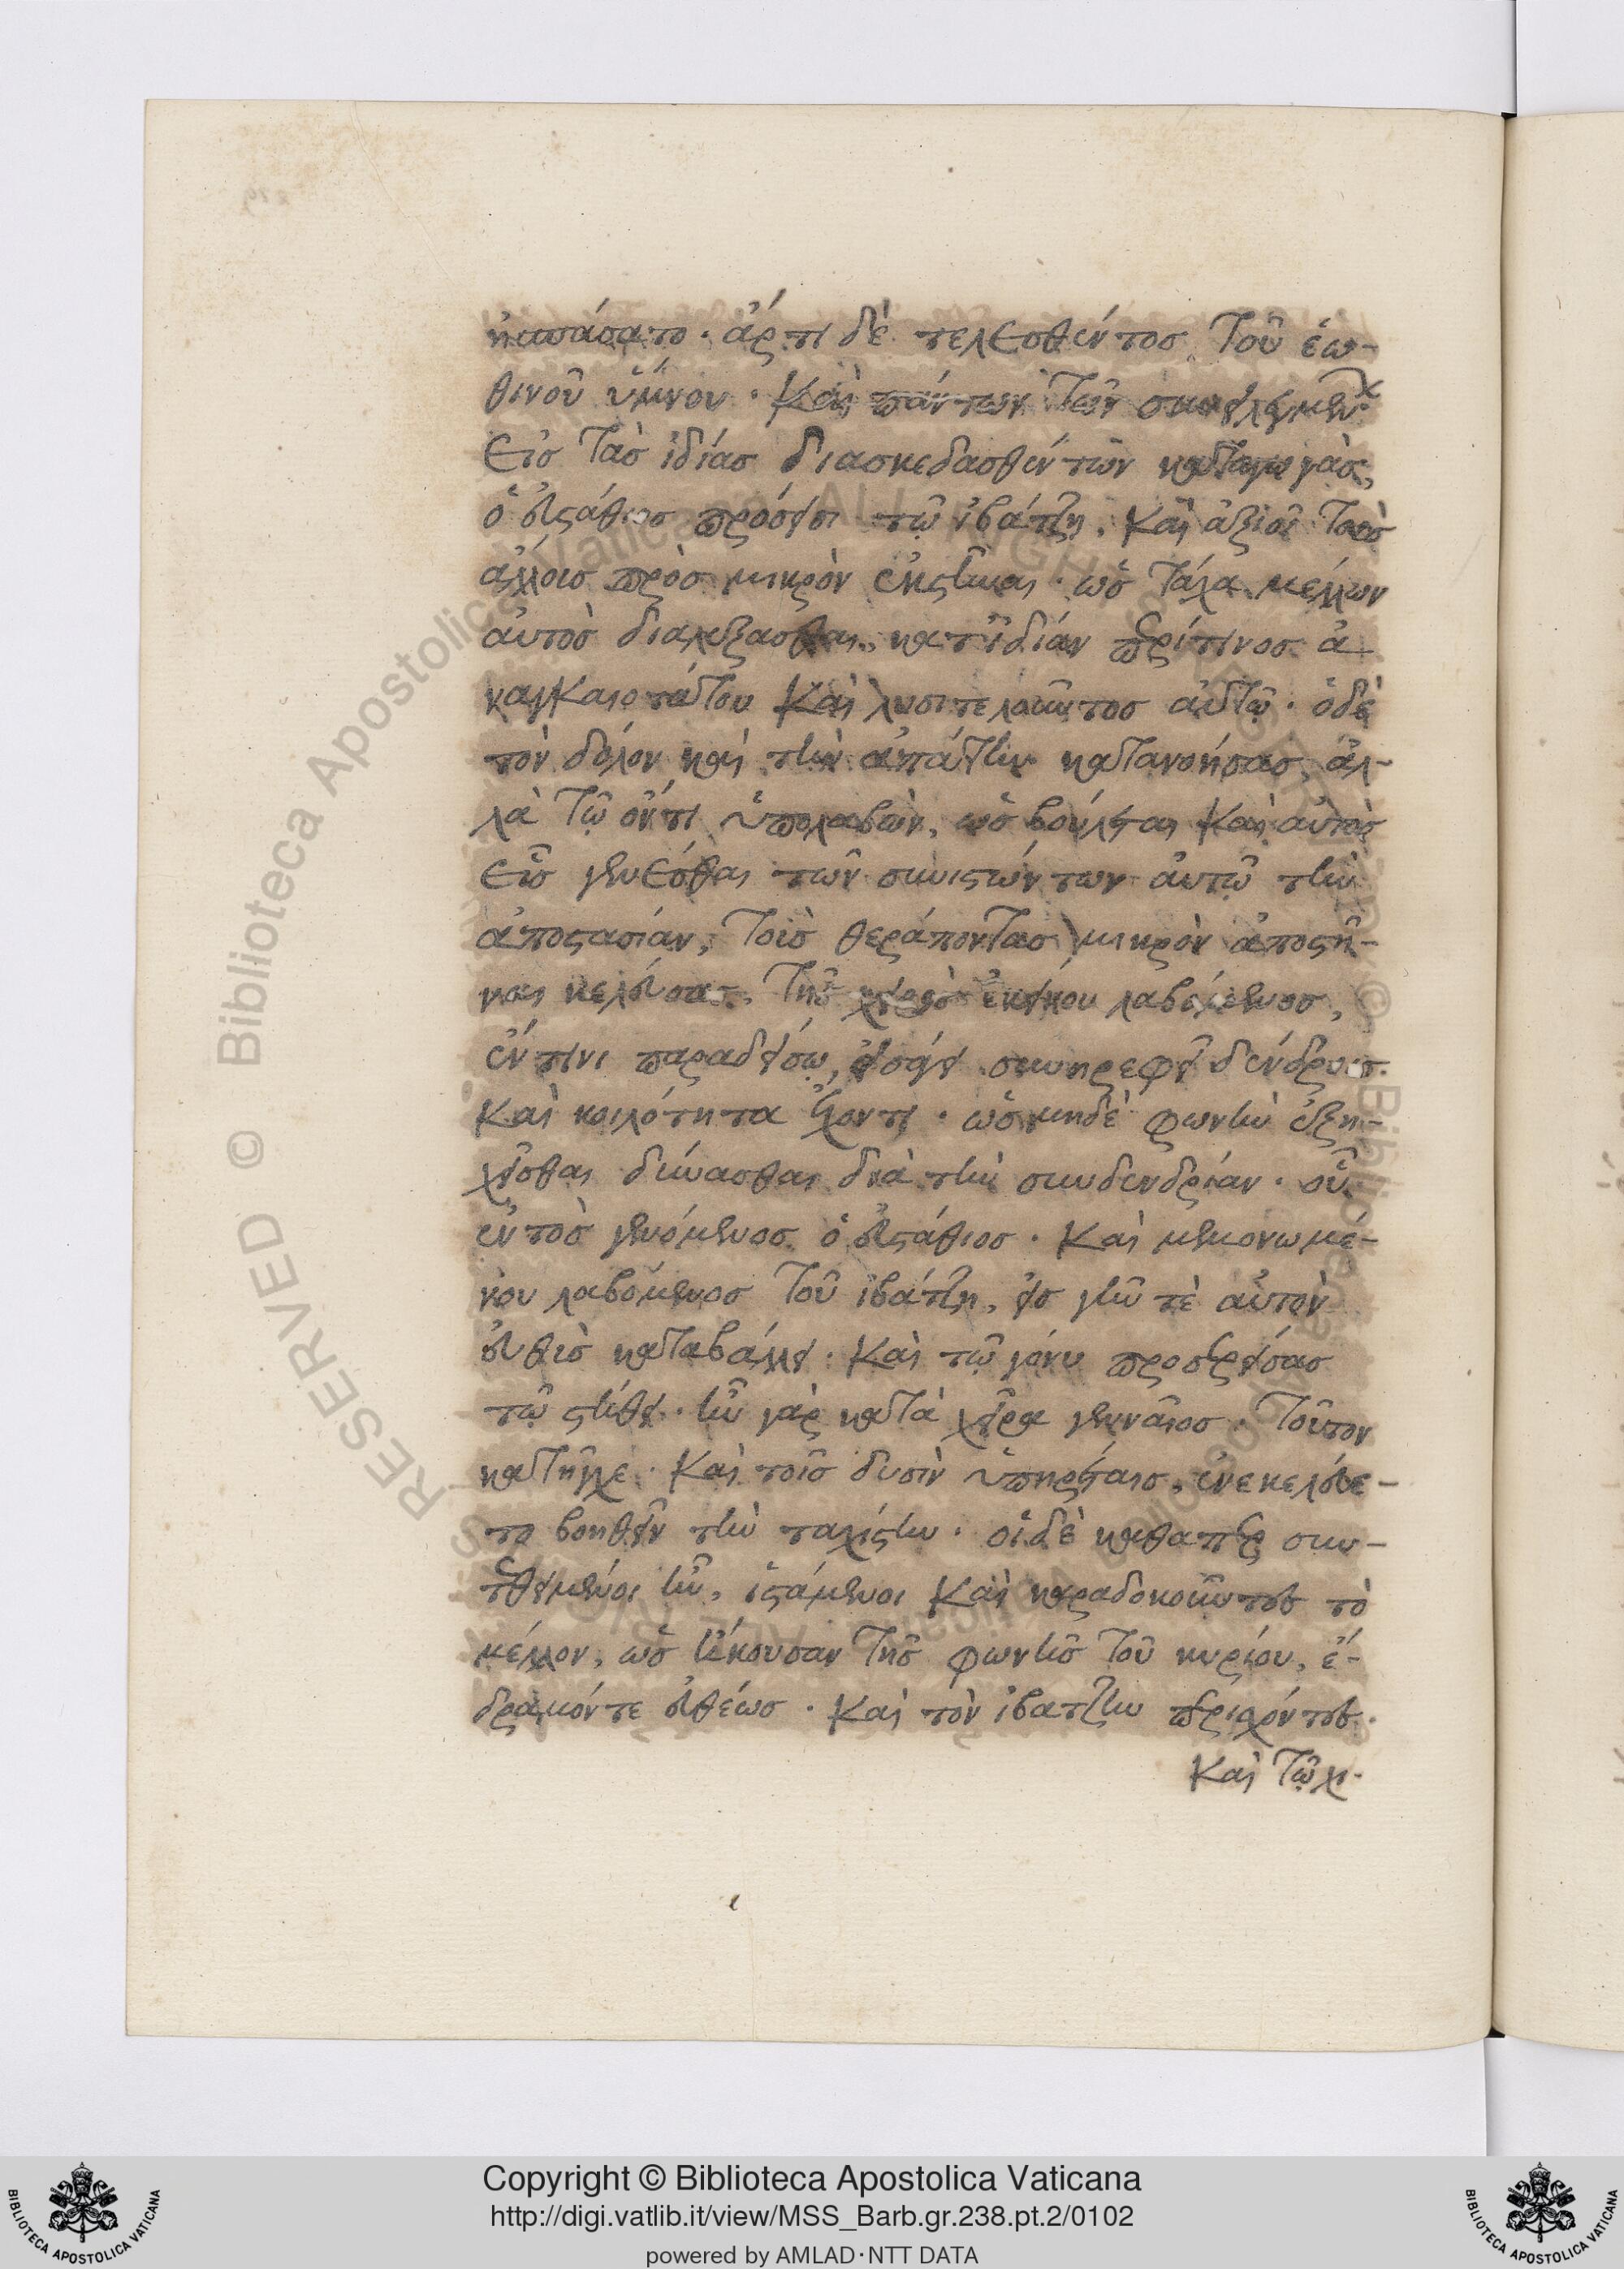 ἠσπάσατο. ἄρτι δὲ τελεσθέντος τοῦ ἑω-
θινοῦ ὕμνου. καὶ πάντων τῶν
εἰς τὰς ἰδίας διασκεδασθέντων καταγωγὰς,
ὁ εὐστάθιος πρόσεισι τῷ ἰβάτζῃ. καὶ ἀξιοῖ τοὺς
ἄλλοις πρὸς μικρὸν ἐκστῆναι. ὡς τάχα μέλλων
αὐτὸς διαλέξασθαι, κατ' ἰδίαν περί τινος ἀ-
ναγκαιοτάτου καὶ λυσιτελοῦντος αὐτῷ. ὁ δὲ
τὸν δόλον καὶ τὴν ἀπάτην κατανοήσας, ἀλ-
λὰ τῷ ὄντι ὑπολαβὼν, ὡς βούλεται καὶ αὐτὸς
εἷς γενέσθαι τῶν συνιστώντων αὐτῷ τὴν
ἀποστασίαν, τοὺς θεράποντας μικρὸν ἀποστῆ-
ναι κελεύσας. τῆς χειρὸς ἐκείνου λαβόμενος,
ἔν τινι παραδείσῳ, εἰσάγει συνηρεφεῖ δένδροις.
καὶ κοιλότητα ἔχοντι. ὡς μηδὲ φωνὴν ἐξη-
χεῖσθαι δύνασθαι διὰ τὴν συνδενδρίαν. οὗ
ἐντὸς γενόμενος ὁ εὐστάθιος. καὶ μεμονωμέ-
νου λαβόμενος τοῦ ἰβάτζη, εἰς γῆν τὲ αὐτὸν
εὐθὺς καταβάλλει. καὶ τῷ γόνυ προσερείσας
τῷ στήθει. ἦν γὰρ κατὰ χεῖρα γενναῖος. τοῦτον
κατῆγχε. καὶ τοῖς δυσὶν ὑπηρέταις, ἐνεκελεύε-
το βοηθεῖν τὴν ταχίστην. οἱ δὲ καθάπερ συν-
τεθειμένοι ἦν, ἱστάμενοι καὶ καραδοκοῦντες τὸ
μέλλον, ὡς ἤκουσαν τῆς φωνῆς τοῦ κυρίου, ἐ-
δραμόντε εὐθέως. καὶ τὸν ἰβατζὴν περισχόντες.
καὶ τῷ χι-
Copyright © Biblioteca Apostolica Vaticana
http://digi.vatlib.it/view/MSS_Barb.gr.238.pt.2/0102
powered by AMLAD·NTT DATA